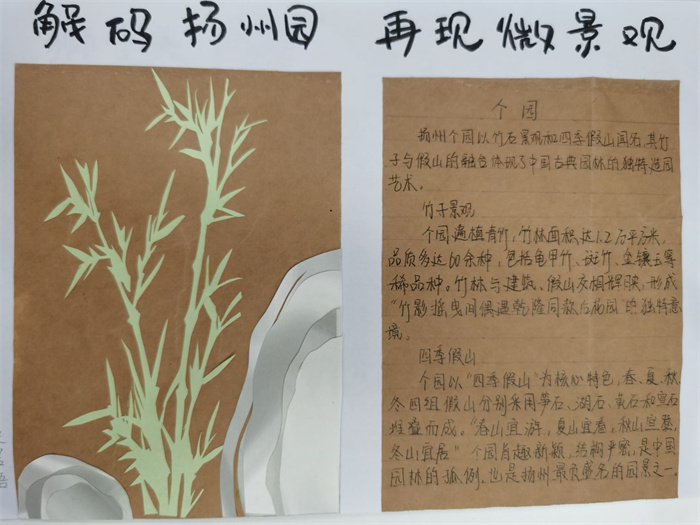 解码扬州园 再现微景观
个园
扬州个园以竹石景观和四季假山闻名,其竹
子与假山的融合体现了中国古典园林的独特造园
艺术。
竹子景观
个园遍植青竹,竹林面积达1.2万平方米,
品质多达60余种,包括龟甲竹、斑竹、金镶玉等
稀品种。竹林与建筑、假山交相辉映,形成
"竹影摇曳间偶遇乾隆同款后花园"的独特意
境。
四季假山
个园以"四季假山"为核心特色,春、夏、秋、
冬四组假山分别采用笋石、湖石、黄石和宣石
堆叠而成。"春山宜游,夏山宜看,秋山宜登,
冬山宜居"个园旨趣新颖,结构严密,是中国
园林的孤例。也是扬州最负盛名的园景之一